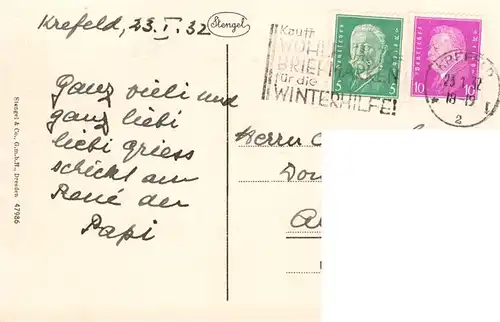 Krefeld, 23. I. 32
Stengel
Ganz vieli und
ganz liebi
liebi griess
schickt am
René der
Papi
Stengel & Co., G.m.b.H., Dresden 47986
Kauft
WOHLF
BRIEFMARKEN
für die
WINTERHILFE!
Deutsches Reich
5 5
Deutsches Reich
10 10
KREFELD
23.1.32
18-19
2
Herrn